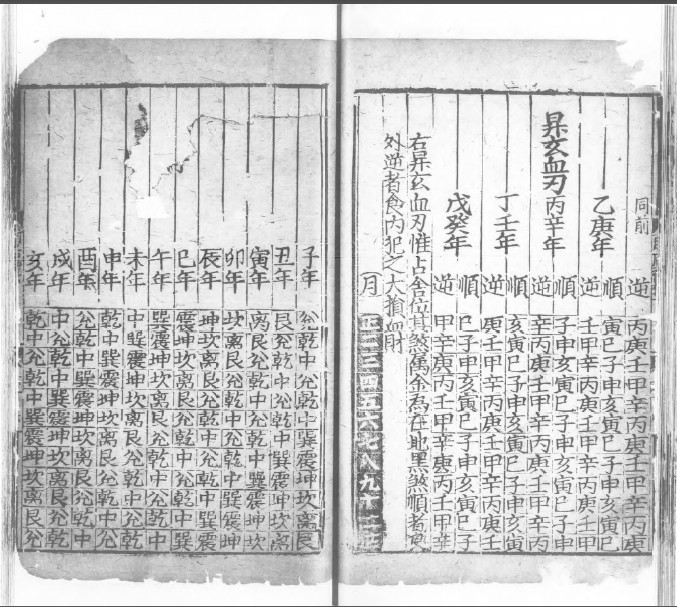 同前 逆 丙庚壬甲辛丙庚壬甲辛丙庚
乙庚年 順 寅巳子申亥寅巳子申亥寅巳
逆 壬甲辛丙庚壬甲辛丙庚壬甲
昇玄血刃 丙辛年 順 子申亥寅巳子申亥寅巳子申
逆 辛丙庚壬甲辛丙庚壬甲辛丙
丁壬年 順 亥寅巳子申亥寅巳子申亥寅
逆 庚壬甲辛丙庚壬甲辛丙庚壬
戊癸年 順 巳子申亥寅巳子申亥寅巳子
逆 甲辛丙庚壬甲辛丙庚壬甲辛
右昇玄血刃惟占舍位其煞属金為在地黑煞順者食
外逆者食内犯之大損血財
月 正二三四五六七八九十
子年 兊乾中兊乾中巽震坤坎离艮
丑年 艮兊乾中兊乾中巽震坤坎离
寅年 离艮兊乾中兊乾中巽震坤坎
卯年 坎离艮兊乾中兊乾中巽震坤
辰年 坤坎离艮兊乾中兊乾中巽震
巳年 震坤坎离艮兊乾中兊乾中巽
午年 巽震坤坎离艮兊乾中兊乾中
未年 中巽震坤坎离艮兊乾中兊乾
申年 乾中巽震坤坎离艮兊乾中兊
酉年 兊乾中巽震坤坎离艮兊乾中
戌年 中兊乾中巽震坤坎离艮兊乾
亥年 乾中兊乾中巽震坤坎离艮兊